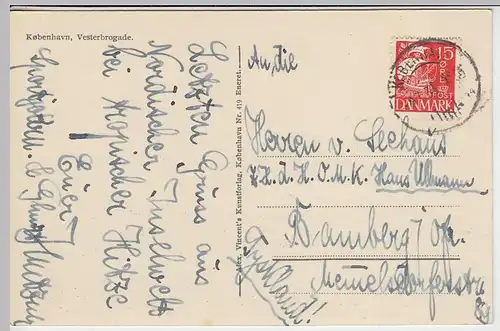 København, Vesterbrogade.
Letzten Gruss aus
Nordischer Inselwelt
bei tropischer Hitze
Euer
Alex. Vincent's Kunstforlag, København Nr. 419 Eneret.
An die
15
ØRE
POST
DANMARK
Herren v. Seehaus
z. H. d. H. O. M. K. Hans Ullmann
Bamberg / Ofr.
Memelsdorferstr
Tyskland!